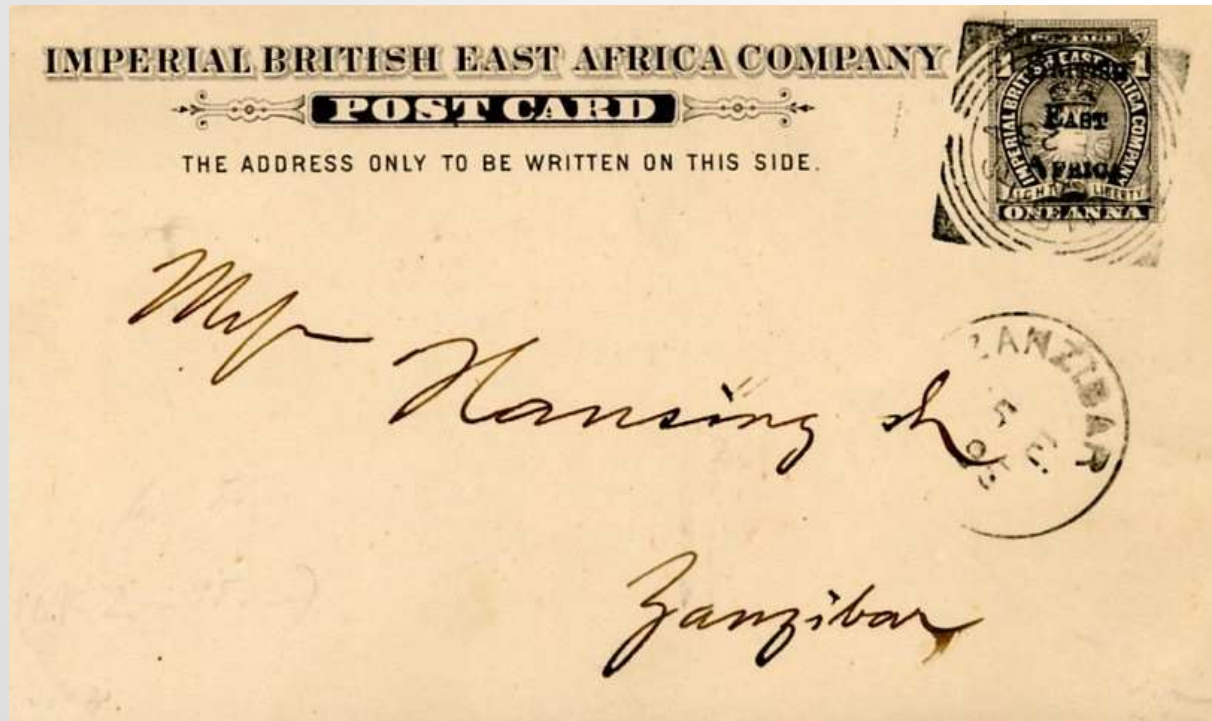 IMPERIAL BRITISH EAST AFRICA COMPANY
POST CARD
THE ADDRESS ONLY TO BE WRITTEN ON THIS SIDE.
POSTAGE
1 1
IMPERIAL BRITISH EAST AFRICA COMPANY
EAST
AFRICA
LIGHT LIBERTY
ONE ANNA
Hansing
ZANZIBAR
Zanzibar